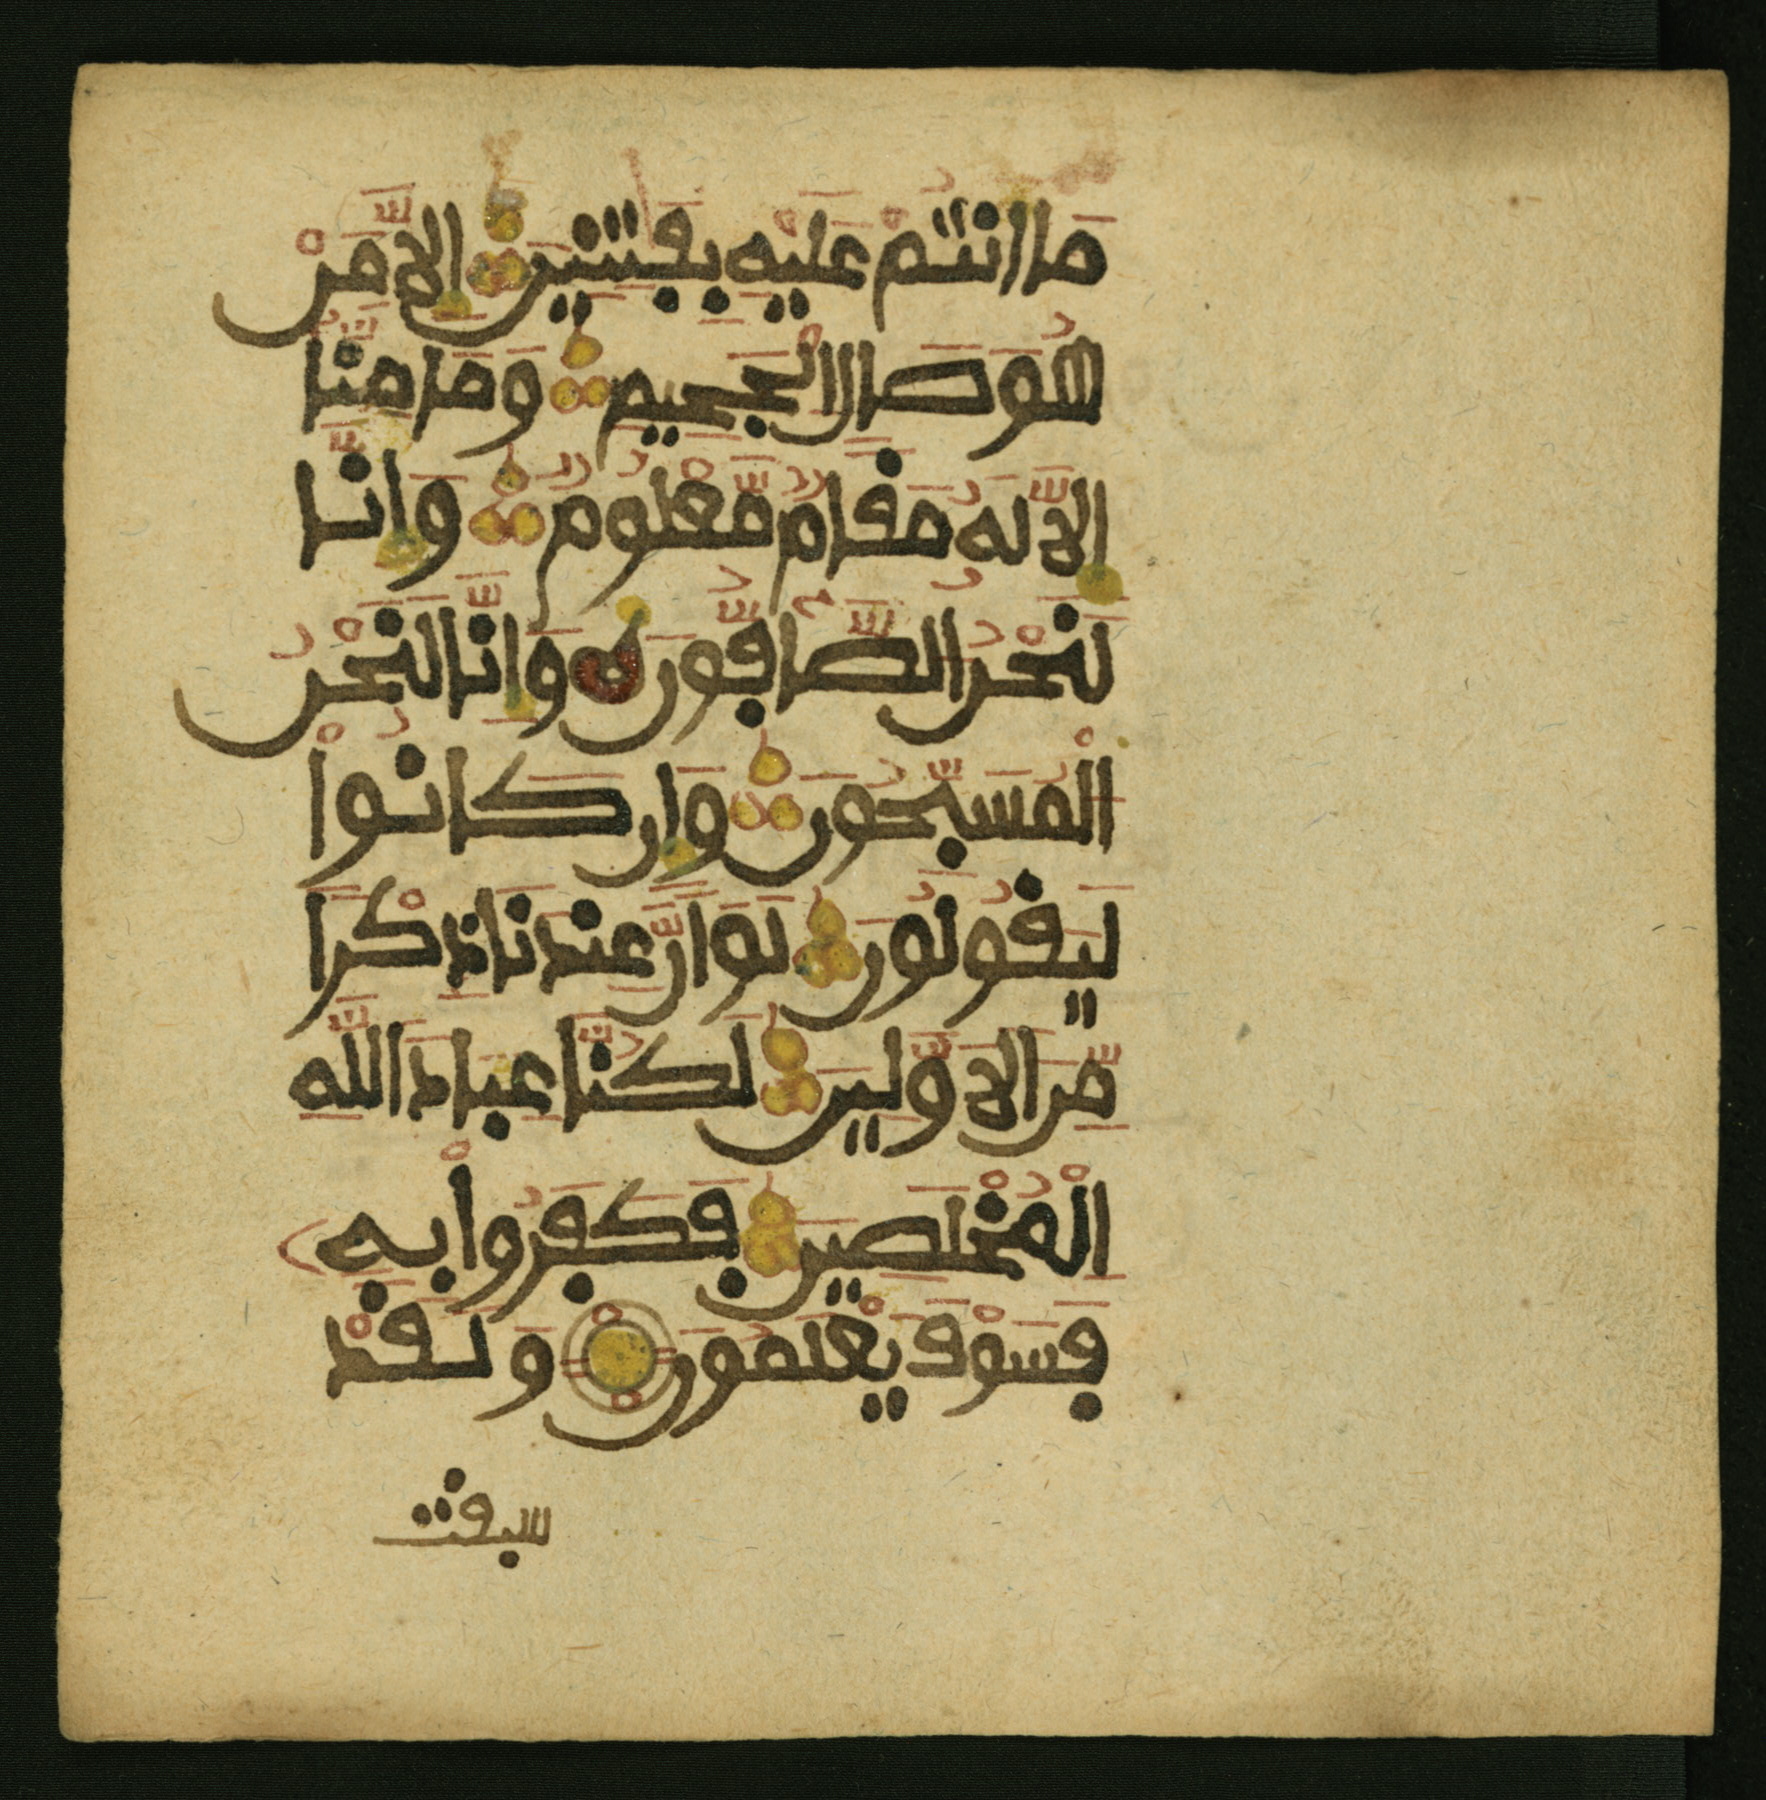 مَا أَنتُمْ عَلَيْهِ بِفَـٰتِنِينَ إِلَّا مَنْ
هُوَ صَالِ الْجَحِيمِ وَمَا مِنَّا
إِلَّا لَهُ مَقَامٌ مَّعْلُومٌ وَإِنَّا
لَنَحْنُ الصَّافُّونَ وَإِنَّا لَنَحْنُ
الْمُسَبِّحُونَ وَإِن كَانُوا
لَيَقُولُونَ لَوْ أَنَّ عِندَنَا ذِكْرًا
مِّنَ الْأَوَّلِينَ لَكُنَّا عِبَادَ اللَّهِ
الْمُخْلَصِينَ فَكَفَرُوا بِهِ
فَسَوْفَ يَعْلَمُونَ وَلَقَدْ
سبقت